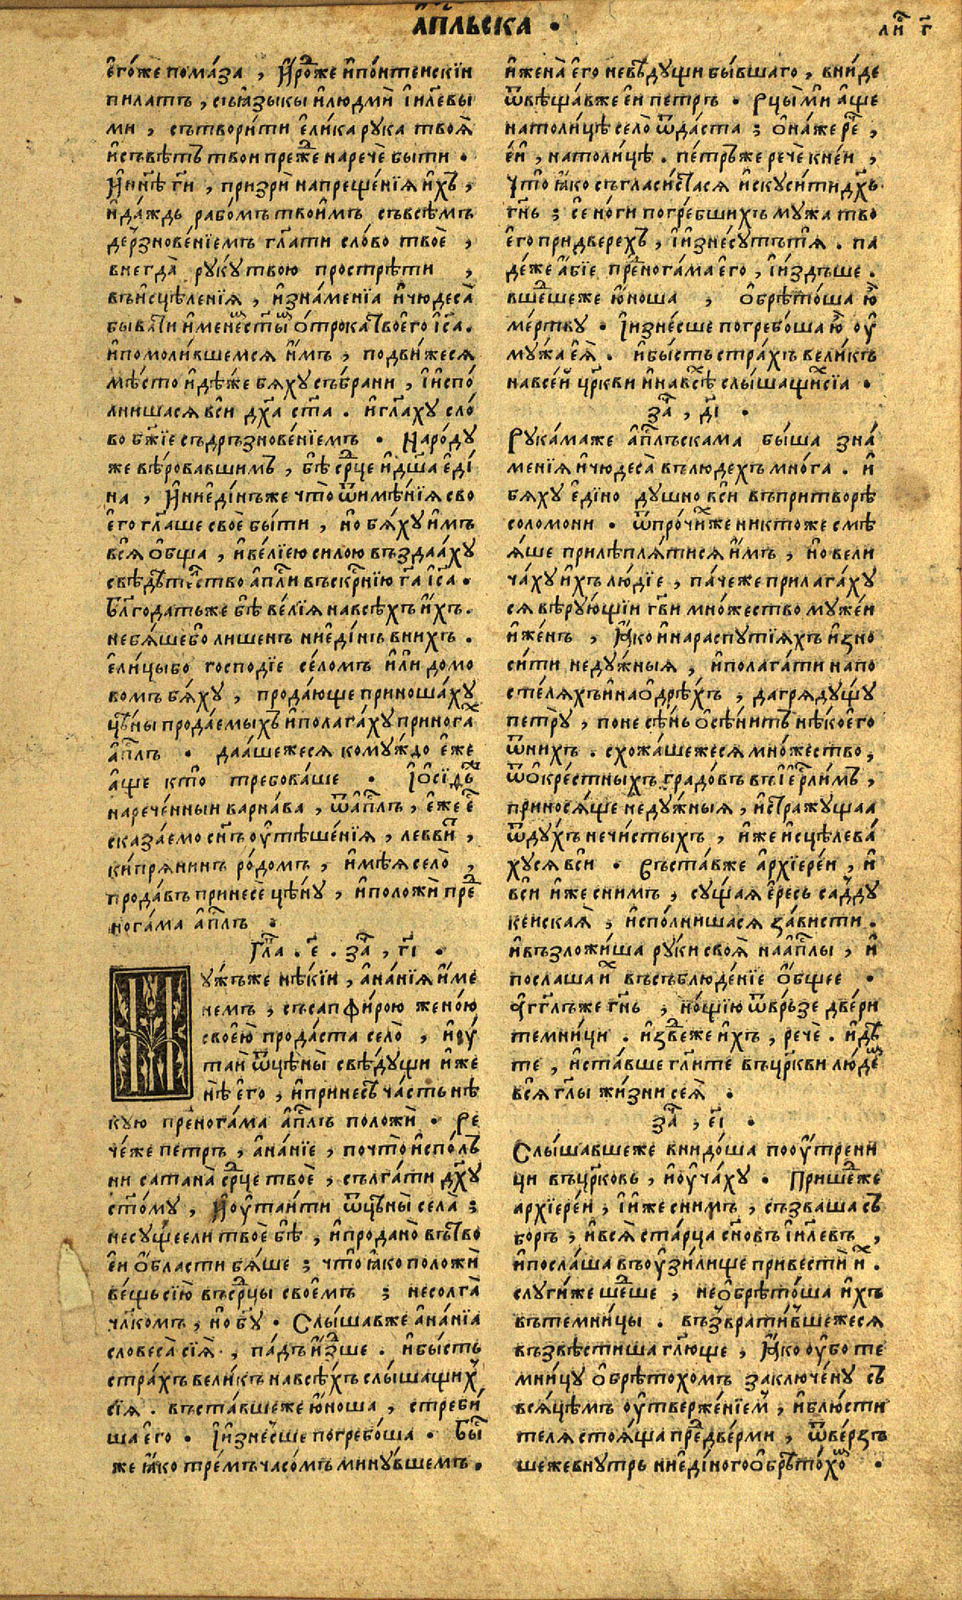 а҆пльска .
ли г
є҆го́же пома́за , И҆ро́же и҆по́нтенскїи
пилатъ , съꙗ҆зыкы и҆людмѝ і҆илевы
ми , сътвори́ти є҆ли́ка рука твоѧ̀
и҆съвѣ́тъ твои преже наречѐ быти .
И҆ннѣ ги , призрѝ напреще́нїѧ и҆хъ ,
и҆да́ждь рабо́мъ твои҆мъ съвсѣмъ
дерзнове́нїемъ глати сло́во твоѐ ,
внегда̀ рукꙋтвою прострѣти ,
въи҆сцѣле́нїѧ , и҆зна́менїа и҆чюдеса̀
быва́ти и҆менемъ сты́мъ о҆трока твоего̀ і҆са .
и҆помоли́вшемсѧ и҆мъ , подви́жесѧ
мѣсто и҆дѣ́же бѧхꙋ събрани , і҆и҆спо́
лнишасѧ вси дха ста . и҆глахꙋ сло́
во бж҃їе съдръзнове́нїемъ . Наро́дꙋ
же вѣ́ровавшимъ , бѣ̀ срце и҆дша є҆ді́
на , И҆ниедінъже что̀ ѿимѣ́нїѧ сво
є҆го глаше своѐ бы́ти , но бѧ́хꙋ и҆мъ
всѧ̀ о҆бща , и҆ве́лїею силою въздаахꙋ
свѣдѣтелство а҆пли въскрнїю га і҆са .
Блгодатьже бѣ̀ ве́лїѧ навсѣхъ и҆хъ .
небѧ́шебо лишенъ ниеді́нъ внихъ .
є҆ли́цыбо господїе се́ломъ и҆лѝ домо
вомъ бѧ́хꙋ , продаю́ще приноша́хꙋ
цѣны прода́емыхъ и҆полага́хꙋ принога
а҆плъ . даа́шежесѧ комꙋ́ждо є҆же
а҆ще кто̀ требова́ше . І҆ѡ҆сїдъ
нарече́нныи варна́ва , ѿа҆плъ , є҆же є
сказа́емо снъ оу҆тѣше́нїѧ , левви́т ,
ки́прѧнинъ ро́домъ , и҆мѣ́ѧ село̀ ,
прода́въ принесѐ цѣ́нꙋ , и҆положѝ пре
нога́ма а҆плъ .
Гла . є . за , гі .
ꙋжъже нѣ́кїи , ана́нїа и҆ме
немъ , съсапфи́рою жено́ю
свое́ю прода́ста село̀ , и҆оу
таѝ ѿцѣны̀ свѣдꙋщи и҆же
нѣ̀ его̀ , и҆принесъ ча́сть нѣ
кꙋю пренога́ма а҆плъ положѝ . Ре
че́же петръ , а҆на́нїе , почто̀ и҆спо́лъ
ни сатана̀ срце твоѐ , сълга́ти дхꙋ
сто́мꙋ , И҆оу҆таи́ти ѿцѣны̀ села̀ ;
несꙋщеели твоѐ бѣ̀ , и҆прода́но вътво
е́и о҆́бласти бѧше ; что̀ ꙗ҆ко положѝ
ве́щьсїю въсрцы свое́мъ ; несолга̀
члкомъ , но бꙋ . Слы́шавже а҆на́нїа
словеса̀ сїѧ̀ , па́дъ и҆здше . и҆бы́сть
стра́хъ вели́къ навсѣ́хъ слы́шащихъ
сїѧ . въста́вшеже ю҆ноша , стреби́
ша его . І҆изне́сше погребо́ша . Бы
же ꙗ҆ко тре́мъ часо́мъ минꙋ́вшемъ .
и҆жена̀ его невѣ́дꙋщи бы́вшаго , вни́де
ѿвѣща́вже еи петръ . Рцы́ ми а҆ще
натоли́цѣ село̀ ѿда́ста ; О҆на́же ре ,
е́и , натоли́цѣ . пе́търъже речѐ кнеи ,
Что̀ ꙗ҆ко съгласи́стасѧ и҆скꙋси́ти дхъ
гнь ; се но́ги погре́бшихъ мꙋжа тво
его̀ придве́рехъ , і҆изнесꙋ́тътѧ . па
де́же а҆бїе пренога́ма его , і҆и́здъше .
вшедшеже ю҆ноша , о҆брѣто́ша ю
ме́ртвꙋ . І҆изне́сше погребо́ша ю оу
мꙋ́жа еѧ̀ . и҆бы́сть стра́хъ вели́къ
навсе́и цркви и҆навсѣ слы́шащисїа .
за , ді .
Рꙋка́маже а҆плъскама бы́ша зна́
менїѧ и҆чюдеса̀ вълюдехъ мно́га . и҆
бѧ́хꙋ е҆ді́но дꙋшно вси въпритворѣ
соломони . ѿпро́чиже никто́же смѣ
ѧ́ше прилѣплѧ́тисѧ и҆мъ , но вели
ча́хꙋ и҆хъ лю́дїе , па́чеже прилага́хꙋ
сѧ вѣ́рꙋющїи гви мно́жество мꙋже́и
и҆же́нъ , Ꙗ҆ко и҆нараспꙋ́тїѧхъ и҆зно
си́ти недꙋ́жныѧ , и҆полага́ти напо
стелѧхъ и҆наодрѣ́хъ , да грѧдꙋщꙋ
петрꙋ , поне сѣ́нь о҆сѣни́тъ нѣ́коего
ѿнихъ . схожа́шежесѧ мно́жество ,
ѿо҆кре́стныхъ градо́въ въі҆ерлимъ ,
приносѧще недꙋ́жныѧ , и҆стра́жꙋщаа
ѿдꙋхъ нечи́стыхъ , и҆же и҆сцѣлева́
хꙋсѧ вси . Съста́вже а҆рхїере́и , и҆
вси и҆же снимъ , сꙋщаѧ е҆ресь саддꙋ
ке́искаѧ , и҆спо́лнишасѧ за́висти .
и҆възложи́ша рꙋки своѧ̀ наа҆плы , и҆
посла́ша и҆х въсъблюде́нїе о҆́бщее .
а҆гглъже гнь , но́щїю ѿвръзе две́ри
темни́ци . и҆зве́деже и҆хъ , рече . и҆дѣ
те , и҆ста́вше глите въцркви люде
всѧ̀ глы жи́зни сеѧ̀ .
за , еі .
Слы́шавшеже внидо́ша пооу҆трени
ци въцр҃ковь , и҆оу҆ча́хꙋ . Прише́дже
а҆рхїере́и , і҆и́же снимъ , съзва́ша съ
боръ , и҆всѧ̀ ста́рца сновъ і҆илевъ ,
и҆посла́ша въоу҆зи́лище привестѝ и҆х .
слꙋги́же ше́дше , необрѣто́ша и҆хъ
вътемни́цы . възврати́вшежесѧ
възвѣсти́ша глюще , Ꙗ҆ко оу҆бо те
мни́цꙋ о҆брѣто́хомъ заключе́нꙋ съ
всѧ́цѣмъ оу҆твержє́нїем , и҆блю́сти
телѧ стоѧща предве́рми , ѿве́рзъ
шежевнꙋтрь ниеді́ного о҆брѣто́хо .